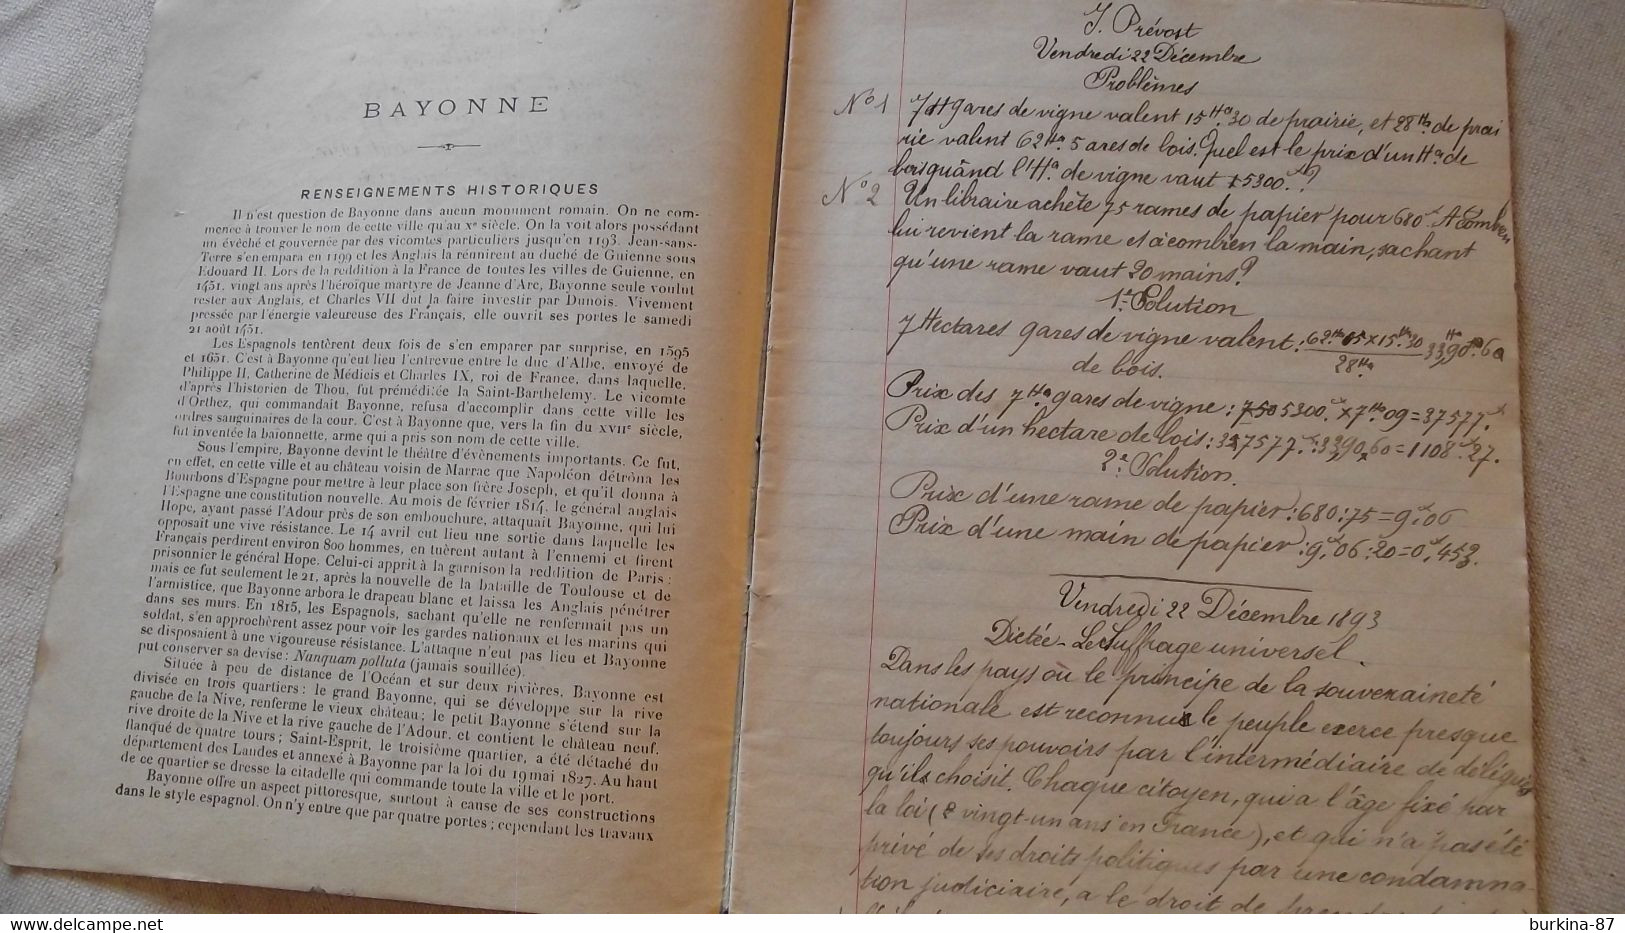 BAYONNE
RENSEIGNEMENTS HISTORIQUES
Il n'est question de Bayonne dans aucun monument romain. On ne com-
mence à trouver le nom de cette ville qu'au xe siècle. On la voit alors possédant
un évêché et gouvernée par des vicomtes particuliers jusqu'en 1193. Jean-sans-
Terre s'en empara en 1199 et les Anglais la réunirent au duché de Guienne sous
Edouard II. Lors de la reddition à la France de toutes les villes de Guienne, en
1451, vingt ans après l'héroïque martyre de Jeanne d'Arc, Bayonne seule voulut
rester aux Anglais, et Charles VII dut la faire investir par Dunois. Vivement
pressée par l'énergie valeureuse des Français, elle ouvrit ses portes le samedi
21 août 1451.
Les Espagnols tentèrent deux fois de s'en emparer par surprise, en 1595
et 1651. C'est à Bayonne qu'eut lieu l'entrevue entre le duc d'Albe, envoyé de
Philippe II, Catherine de Médicis et Charles IX, roi de France, dans laquelle,
d'après l'historien de Thou, fut préméditée la Saint-Barthelemy. Le vicomte
d'Orthez, qui commandait Bayonne, refusa d'accomplir dans cette ville les
ordres sanguinaires de la cour. C'est à Bayonne que, vers la fin du XVIIe siècle,
fut inventée la baïonnette, arme qui a pris son nom de cette ville.
Sous l'empire, Bayonne devint le théâtre d'évènements importants. Ce fut,
en effet, en cette ville et au château voisin de Marrac que Napoléon détrôna les
Bourbons d'Espagne pour mettre à leur place son frère Joseph, et qu'il donna à
l'Espagne une constitution nouvelle. Au mois de février 1814, le général anglais
Hope, ayant passé l'Adour près de son embouchure, attaquait Bayonne, qui lui
opposait une vive résistance. Le 14 avril eut lieu une sortie dans laquelle les
Français perdirent environ 800 hommes, en tuèrent autant à l'ennemi et firent
prisonnier le général Hope. Celui-ci apprit à la garnison la reddition de Paris :
mais ce fut seulement le 21, après la nouvelle de la bataille de Toulouse et de
l'armistice, que Bayonne arbora le drapeau blanc et laissa les Anglais pénétrer
dans ses murs. En 1815, les Espagnols, sachant qu'elle ne renfermait pas un
soldat, s'en approchèrent assez pour voir les gardes nationaux et les marins qui
se disposaient à une vigoureuse résistance. L'attaque n'eut pas lieu et Bayonne
put conserver sa devise : Nanquam polluta (jamais souillée).
Située à peu de distance de l'Océan et sur deux rivières, Bayonne est
divisée en trois quartiers : le grand Bayonne, qui se développe sur la rive
gauche de la Nive, renferme le vieux château ; le petit Bayonne s'étend sur la
rive droite de la Nive et la rive gauche de l'Adour, et contient le château neuf,
flanqué de quatre tours ; Saint-Esprit, le troisième quartier, a été détaché du
département des Landes et annexé à Bayonne par la loi du 19 mai 1827. Au haut
de ce quartier se dresse la citadelle qui commande toute la ville et le port.
Bayonne offre un aspect pittoresque, surtout à cause de ses constructions
dans le style espagnol. On n'y entre que par quatre portes ; cependant les travaux
J. Prévost
Vendredi 22 Décembre
Problèmes
No 1 7H 9ares de vigne valent 15Ha.30 de prairie, et 28Ha de prai
rie valent 62Ha.5 ares de bois. Quel est le prix d'un Ha de
bois quand l'Ha. de vigne vaut 5300.f?
No 2 Un libraire achète 75 rames de papier pour 680f A Combien
lui revient la rame et à combien la main, sachant
qu'une rame vaut 20 mains?
1re Solution
7 Hectares 9ares de vigne valent : 62Ha 05 x 15Ha.30 3390a.60
28Ha
de bois.
Prix des 7Ha 9ares de vigne : 5300.f x 7Ha 09 = 37577.f
Prix d'un hectare de bois : 37577.f : 3390,60 = 1108.f27.
2e Solution.
Prix d'une rame de papier : 680 : 75 = 9.f06
Prix d'une main de papier : 9,f06 : 20 = 0f,453.
Vendredi 22 Décembre 1893
Dictée - Le Suffrage universel.
Dans les pays où le principe de la souveraineté
nationale est reconnu le peuple exerce presque
toujours ses pouvoirs par l'intermédiaire de délégués
qu'il choisit. Chaque citoyen, qui a l'âge fixé par
la loi ( vingt-un ans en France), et qui n'a pas été
privé de ses droits politiques par une condamna-
tion judiciaire, a le droit de
burkina-87